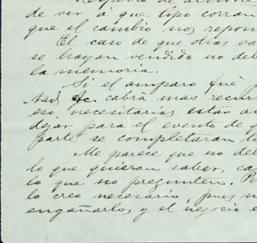 de ver a que tipo corran
que el cambio nos repon
El caso de que otras va
se hayan vendido no deb
la memoria.
Si el amparo fué p
Nad &c. cabrá mas recur
eso, necesitarias estar a
dejar para el evento de q
parte se completaran t
Me parece que no deb
lo que quieran saber, ca
lo que no pregunten. Pe
lo creo necesario, pues n
engañarlos y el negocio e